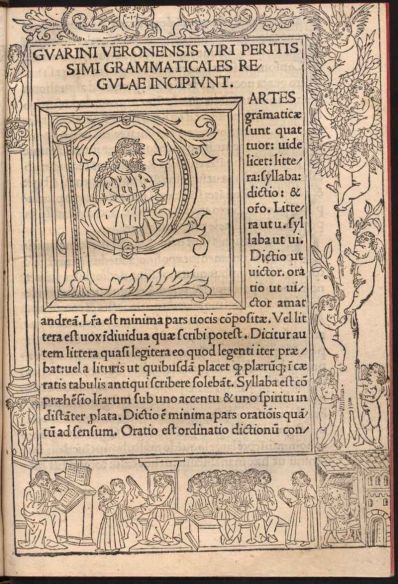 GVARINI VERONENSIS VIRI PERITIS
SIMI GRAMMATICALES RE
GVLAE INCIPIVNT.
PARTES
grāmaticæ
sunt quat
tuor: uide
licet: litte/
ra: syllaba:
dictio: &
oŕo. Litte/
ra ut u. syl
laba ut ui.
Dictio ut
uictor. ora
tio ut ui/
ctor amat
andreā. Lŕa est minima pars uocis cōpositæ. Vel lit
tera est uox īdiuidua quæ scribi potest. Dicitur au
tem littera quasi legitera eo quod legenti iter præ/
bat: uel a lituris ut quibusdā placet ꝙ plærūꝗ; ī cæ
ratis tabulis antiqui scribere solebāt. Syllaba est cō
præhēsio lŕarum sub uno accentu & uno spiritu in
distāter ꝓlata. Dictio ē minima pars oratiōis quā/
tū ad sensum. Oratio est ordinatio dictionū con/